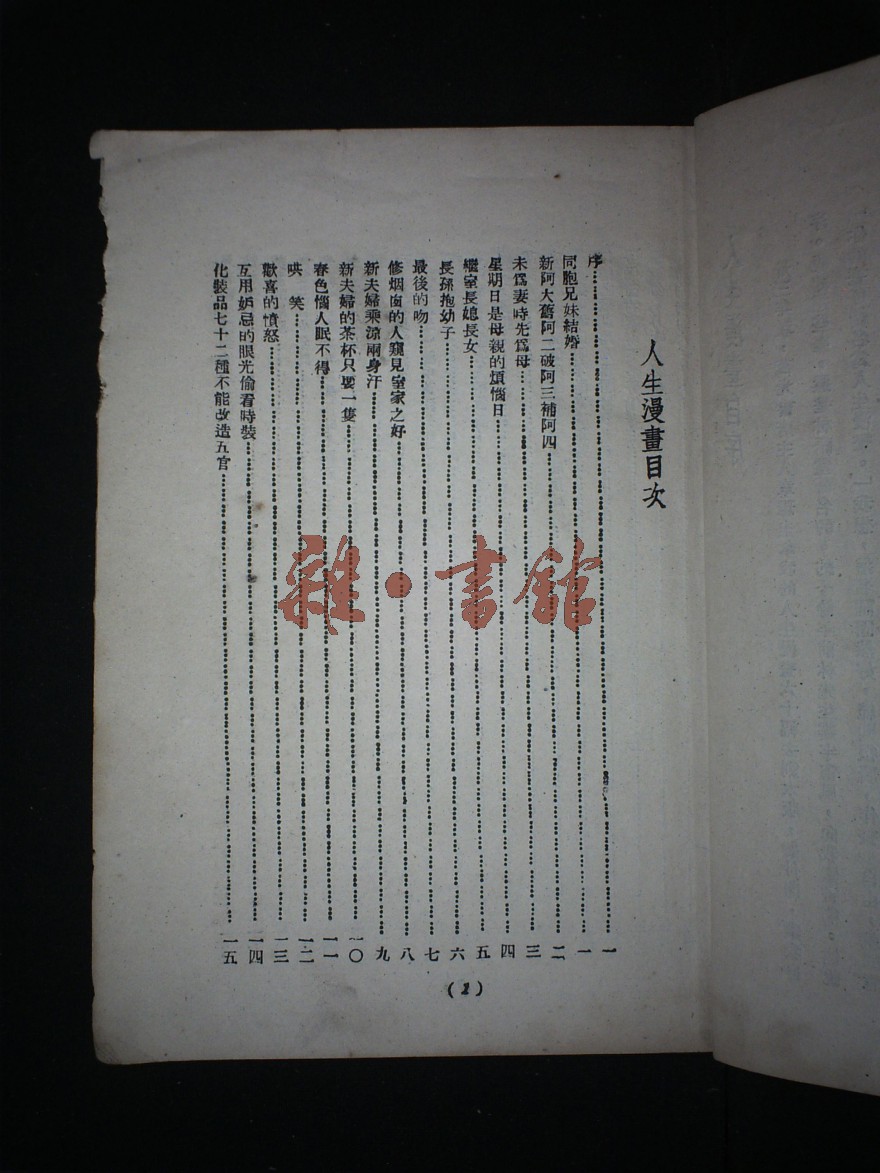 人生漫畫目次
序……一
同胞兄妹結婚……一
新阿大舊阿二破阿三補阿四……二
未爲妻時先爲母……三
星期日是母親的煩惱日……四
繼室長媳長女……五
長孫抱幼子……六
最後的吻……七
修烟囪的人窺見室家之好……八
新夫婦乘涼兩身汗……九
新夫婦的茶杯只要一隻……一〇
春色惱人眠不得……一一
哄笑……一二
歡喜的憤怒……一三
互用妬忌的眼光偷看時裝……一四
化裝品七十二種不能改造五官……一五
(1)
雜·書舘